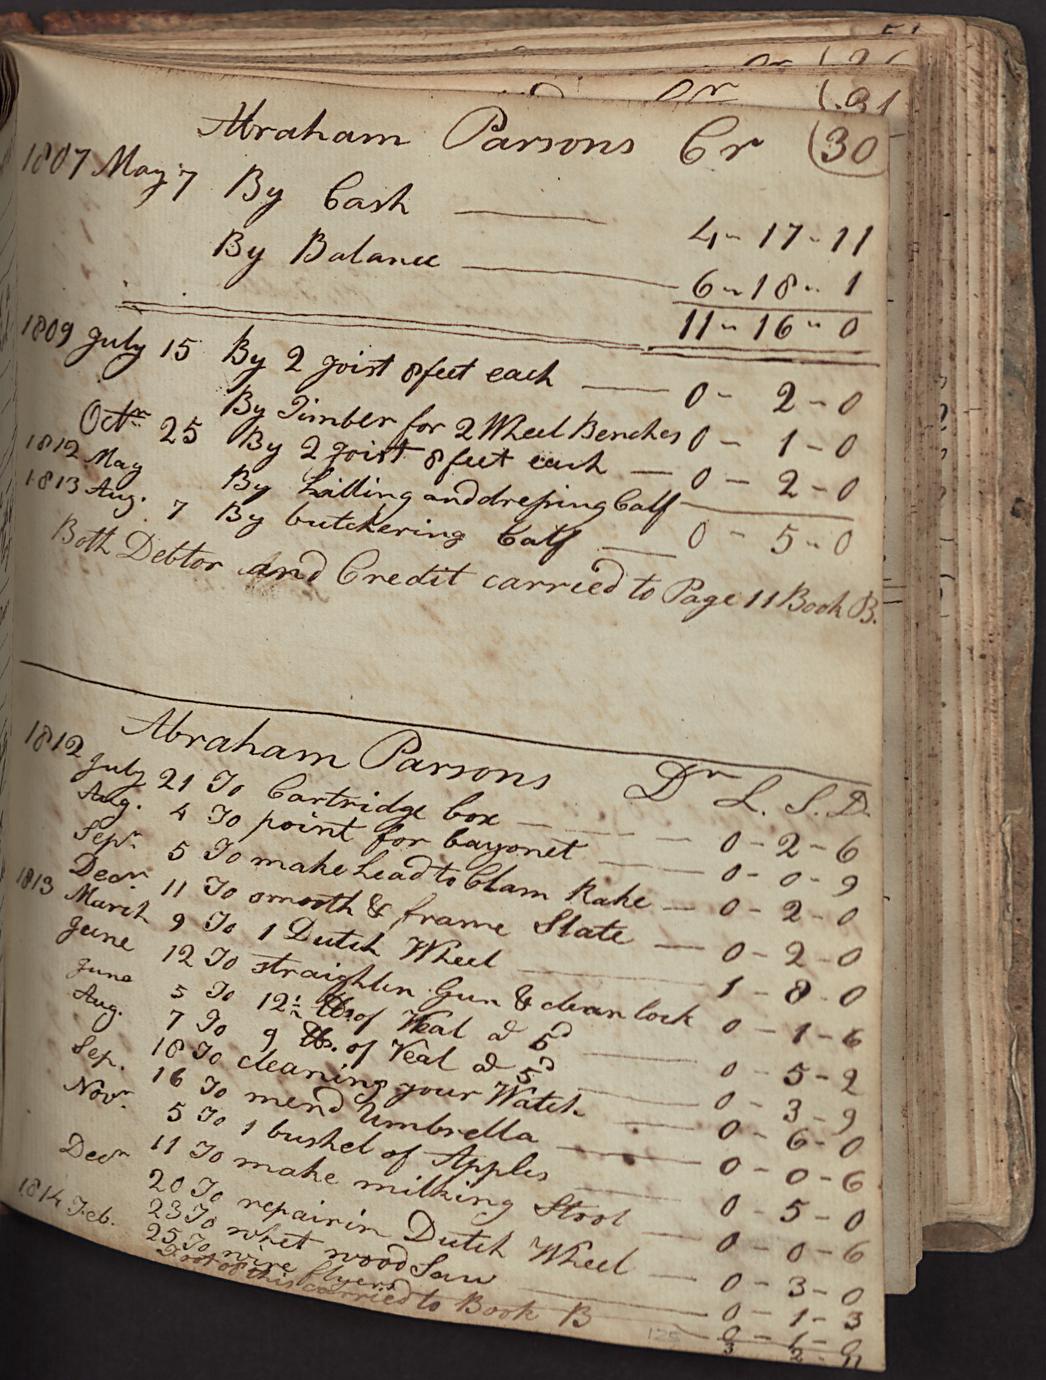 (31
Abraham Parsons Cr (30
1807 May 7 By Cash 4 - 17 - 11
By Balance 6 - 18 - 1
11 - 16 - 0
1809 July 15 By 2 Joist 8 feet each 0 - 2 - 0
By Timber for 2 Wheel Benches 0 - 1 - 0
Octr 25 By 2 joist 8 feet each 0 - 2 - 0
1812 May By killing and dressing Calf
1813 Aug. 7 By butchering Calf 0 - 5 - 0
Both Debtor and Credit carried to Page 11 Book B.
Abraham Parsons Dr L. S. D.
1812 July 21 To Cartridge box 0 - 2 - 6
Aug. 4 To point for bayonet 0 - 0 - 9
Sepr. 5 To make head to Clam Rake 0 - 2 - 0
Decr. 11 To smooth & frame Slate 0 - 2 - 0
1813 March 9 To 1 Dutch Wheel 1 - 8 - 0
June 12 To straighten Gun & clean lock 0 - 1 - 6
June 5 To 12½ lb. of Veal a 5d 0 - 5 - 2
Aug. 7 To 9 lb. of Veal a 5d 0 - 3 - 9
18 To cleaning your Watch 0 - 6 - 0
Sep. 16 To mend Umbrella 0 - 0 - 6
Novr. 5 To 1 bushel of Apples 0 - 5 - 0
11 To make milking Stool 0 - 0 - 6
Decr 20 To repairin Dutch Wheel 0 - 3 - 0
1814 Feb. 23 To whet wood Saw 0 - 1 - 3
25 To wire flyers 0 - 1 - 0
Foot of this carried to Book B 3 2 11
125